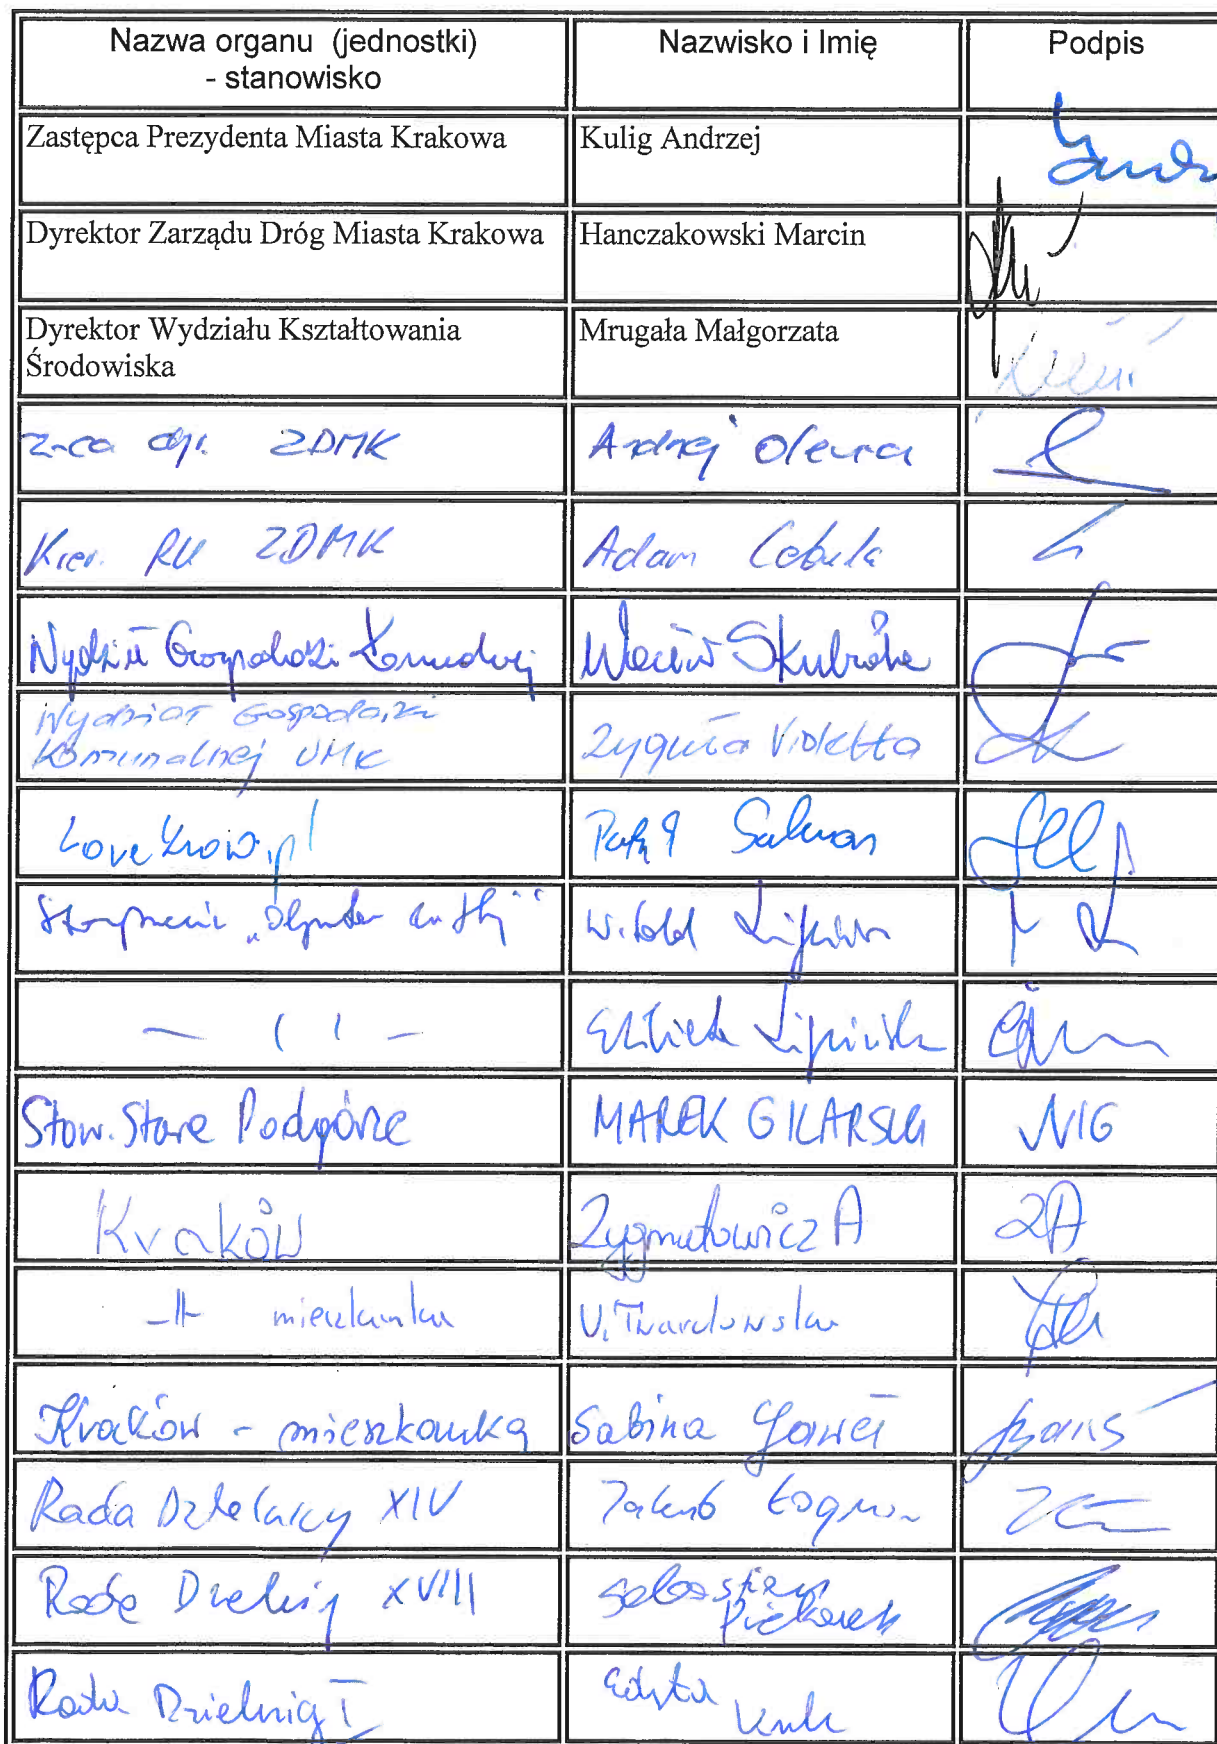 Nazwa organu (jednostki) Nazwisko i Imię Podpis
- stanowisko
Zastępca Prezydenta Miasta Krakowa Kulig Andrzej
Dyrektor Zarządu Dróg Miasta Krakowa Hanczakowski Marcin
Dyrektor Wydziału Kształtowania Mrugała Małgorzata
Środowiska
z-ca dyr. ZDMK Andrzej
Kier. RU ZDMK Adam Cebula
Wydział Gospodarki Komunalnej Skubida
Wydział Gospodarki
Komunalnej UMK Zyguła Violetta
LoveKraków.pl Salwa
Stowarzyszenie Witold Lipiński
- 11 - Elżbieta Lipińska
Stow. Stare Podgórze MAREK GILARSKI MG
Kraków Zygmuntowicz A ZA
-11- mieszkanka U. Twardowska
Kraków - mieszkanka Sabina Gaweł
Rada Dzielnicy XIV Jakub
Rada Dzielnicy XVIII Sebastian
Piekarek
Rada Dzielnicy I Edyta